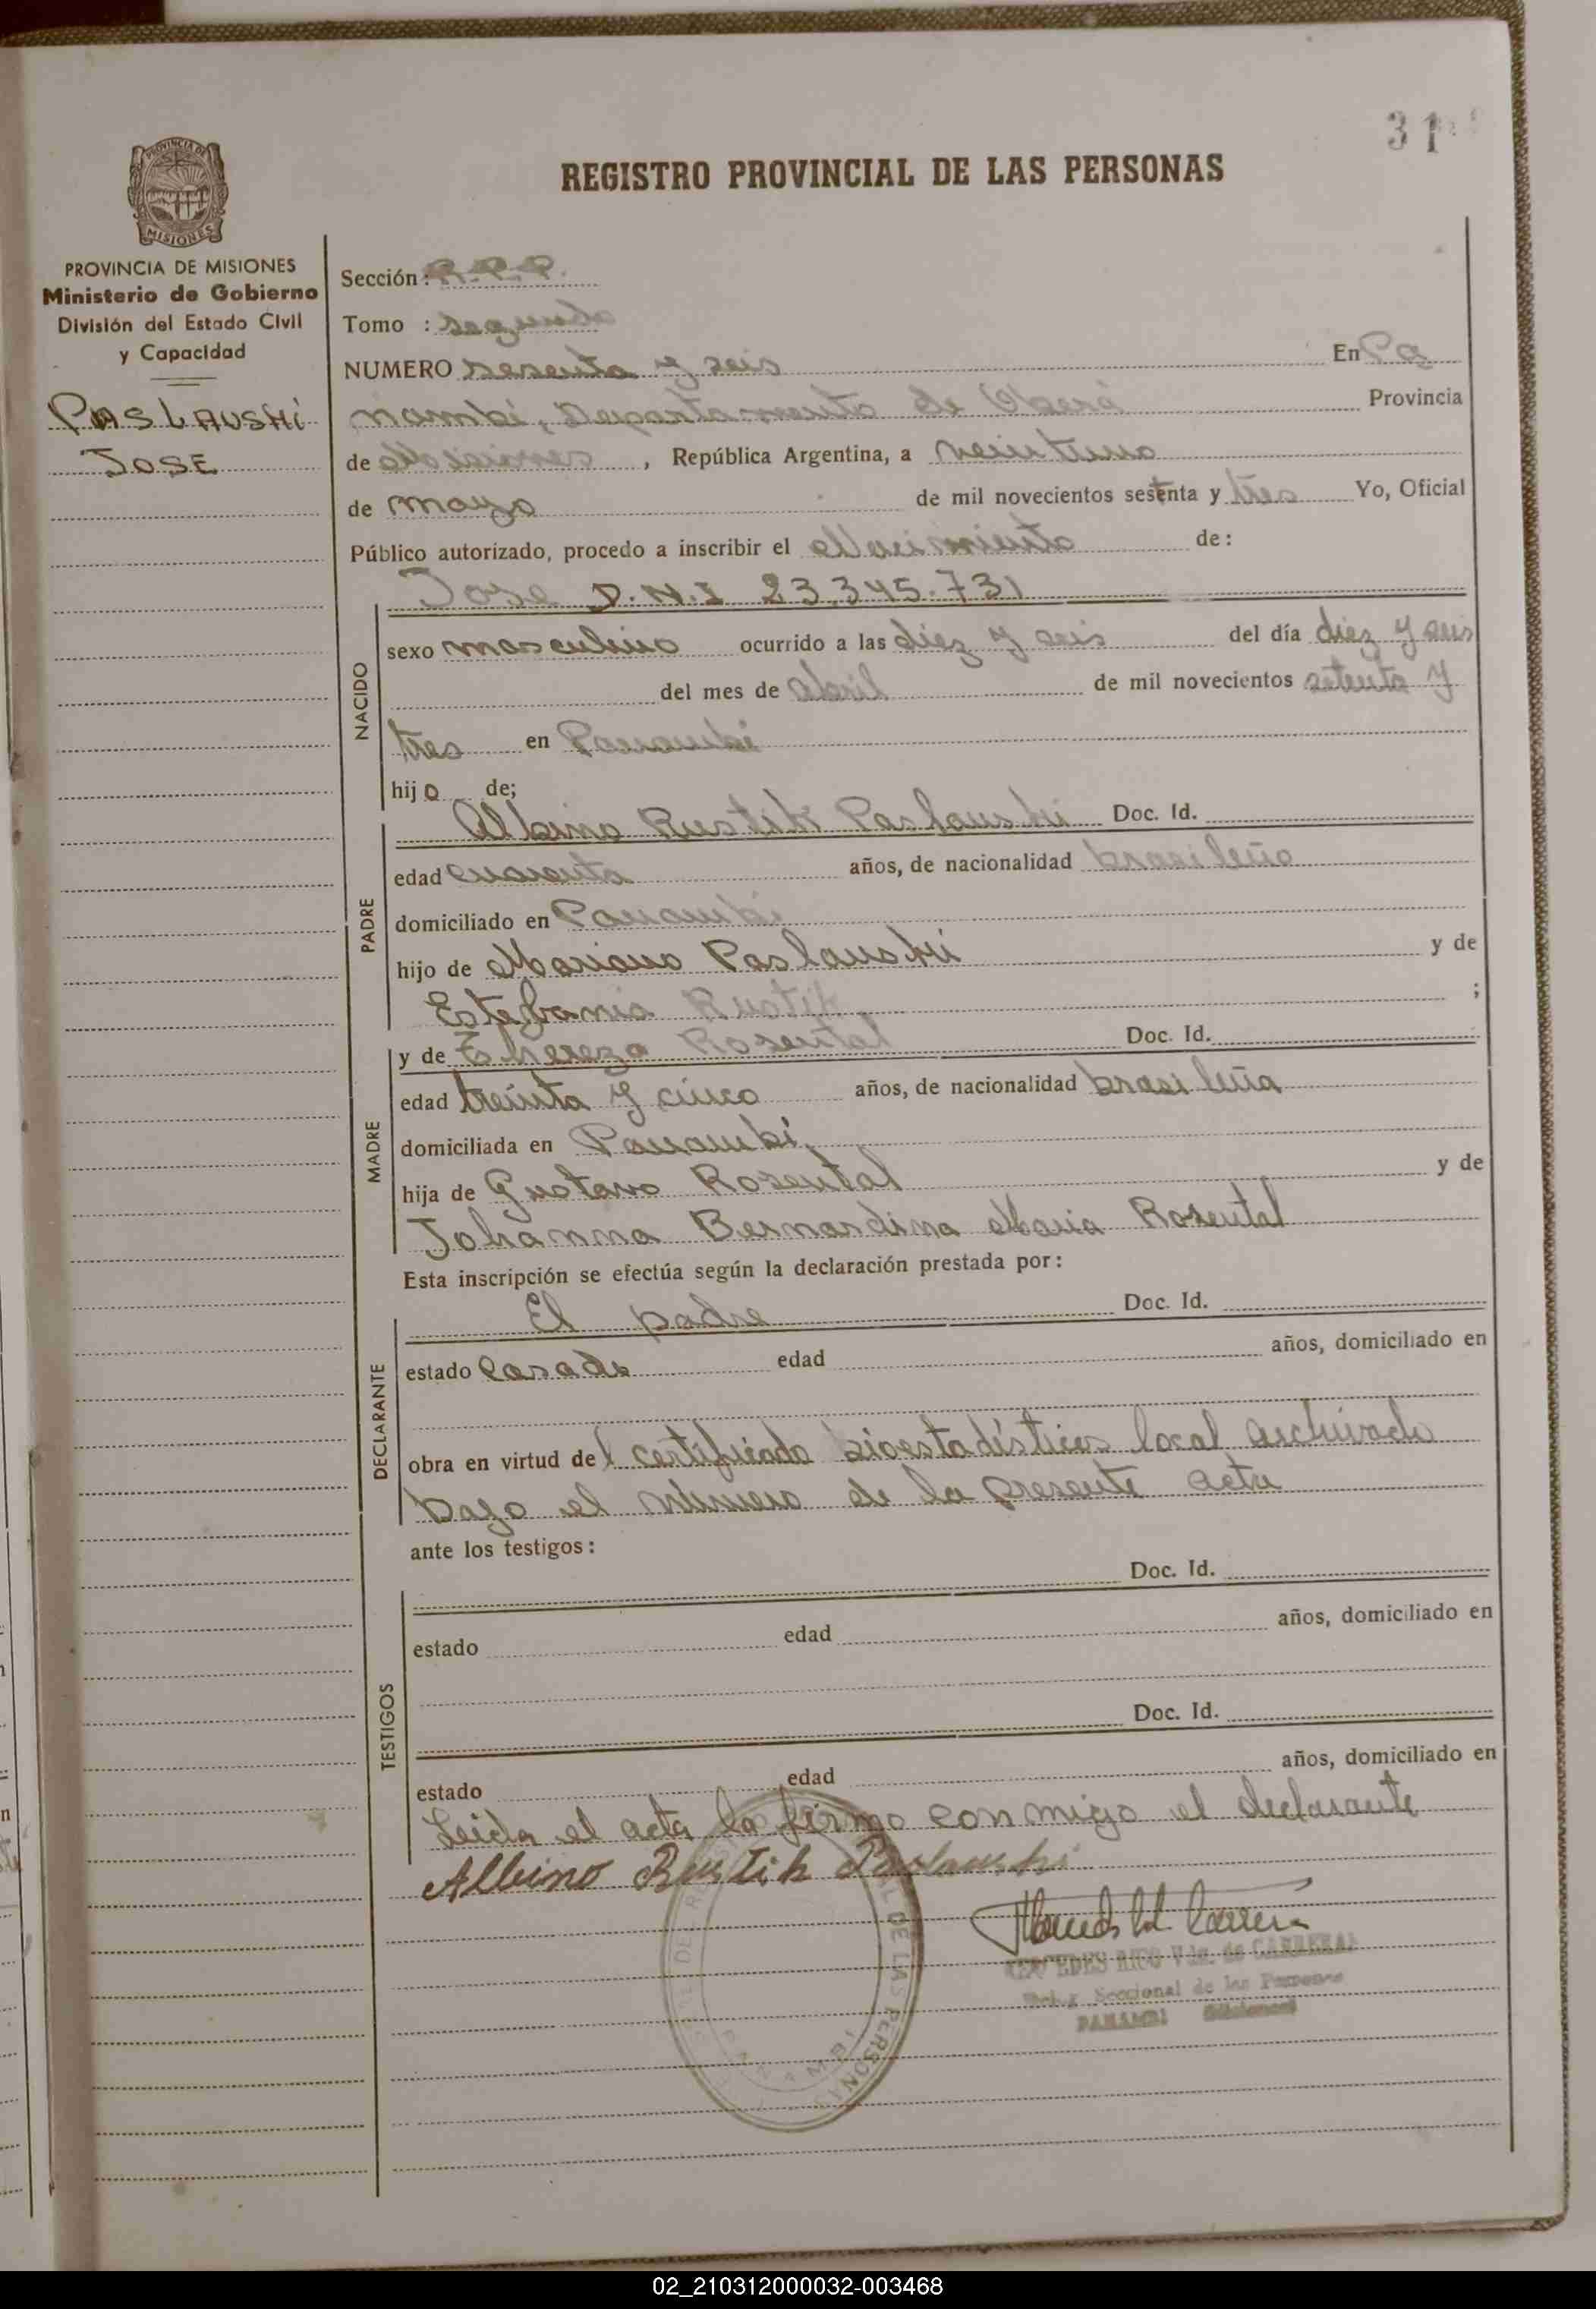 31
REGISTRO PROVINCIAL DE LAS PERSONAS
PROVINCIA DE
MISIONES
PROVINCIA DE MISIONES
Ministerio de Gobierno
División del Estado Civil
y Capacidad
PASLAUSKI
JOSE
Sección: R.P.P.
Tomo : segundo
NUMERO sesenta y seis En Pa
nambí, Departamento de Oberá Provincia
de Misiones, República Argentina, a veintiuno
de mayo de mil novecientos setenta y tres Yo, Oficial
Público autorizado, procedo a inscribir el Nacimiento de:
Jose D.N.I 23.345.731
NACIDO
sexo masculino ocurrido a las diez y seis del día diez y seis
del mes de abril de mil novecientos setenta y
tres en Panambí
hijo de;
PADRE
Albino Rustik Paslauski Doc. Id.
edad cuarenta años, de nacionalidad brasileño
domiciliado en Panambí
hijo de Mariano Paslauski y de
Estefania Rustik ;
MADRE
y de Thereza Rosental Doc. Id.
edad treinta y cinco años, de nacionalidad brasileña
domiciliada en Panambí
hija de Gustavo Rosental y de
Johanna Bernardina Maria Rosental
Esta inscripción se efectúa según la declaración prestada por:
DECLARANTE
El padre Doc. Id.
estado casado edad años, domiciliado en
obra en virtud del certificado bioestadístico local archivado
bajo el número de la presente acta
ante los testigos:
TESTIGOS
Doc. Id.
estado edad años, domiciliado en
Doc. Id.
estado edad años, domiciliado en
Leida el acta la firmo conmigo el declarante
Albino Rustik Paslauski
MERCEDES RICO Vda. de CARRERA
Seccional de las Personas
PANAMBI Misiones
DE LAS PERSONAS
PANAMBI
02_210312000032-003468